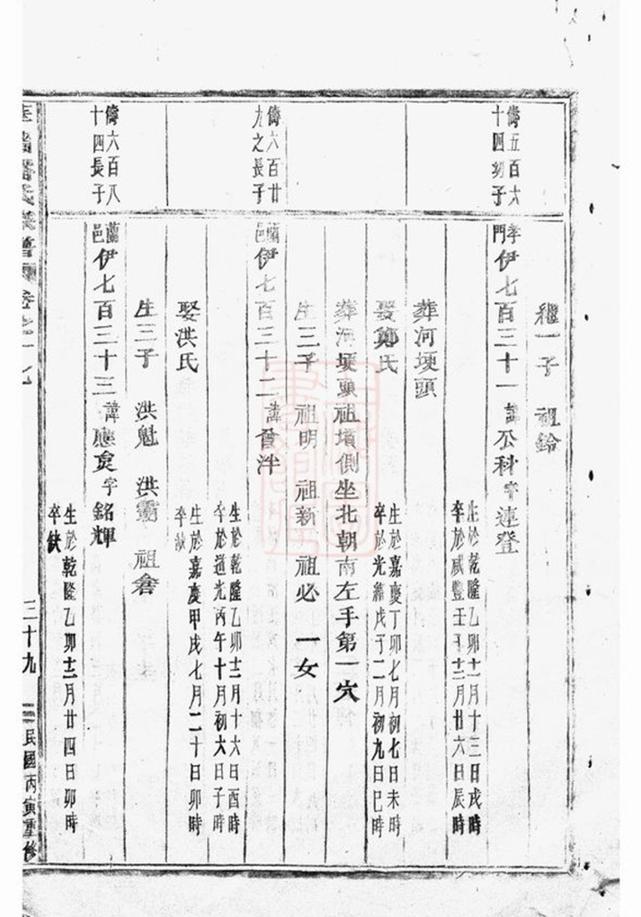 繼一子 祖鈴
儔五百六
十四幼子
孝門 伊七百三十一 諱公科 字連登
生於乾隆乙卯十一月十三日戌時
卒於咸豐壬子十二月廿六日辰時
葬河埂頭
娶鄭氏
生於嘉慶丁卯七月初七日未時
卒於光緒戊子二月初九日巳時
葬河埂頭祖墳側坐北朝南左手第一穴
生三子 祖明 祖新 祖必 一女
儔六百廿
九之長子
蘭邑 伊七百三十二 諱 泮
生於乾隆乙卯十一月十六日酉時
卒於道光丙午十月初六日子時
娶洪氏
生於嘉慶甲戌七月二十日卯時
卒缺
生三子 洪魁 洪霸 祖詹
儔六百八
十四長子
蘭邑 伊七百三十三 諱應 字銘輝
生於乾隆乙卯十二月廿四日卯時
卒缺
氏 卷之 三十九 民國丙寅重修